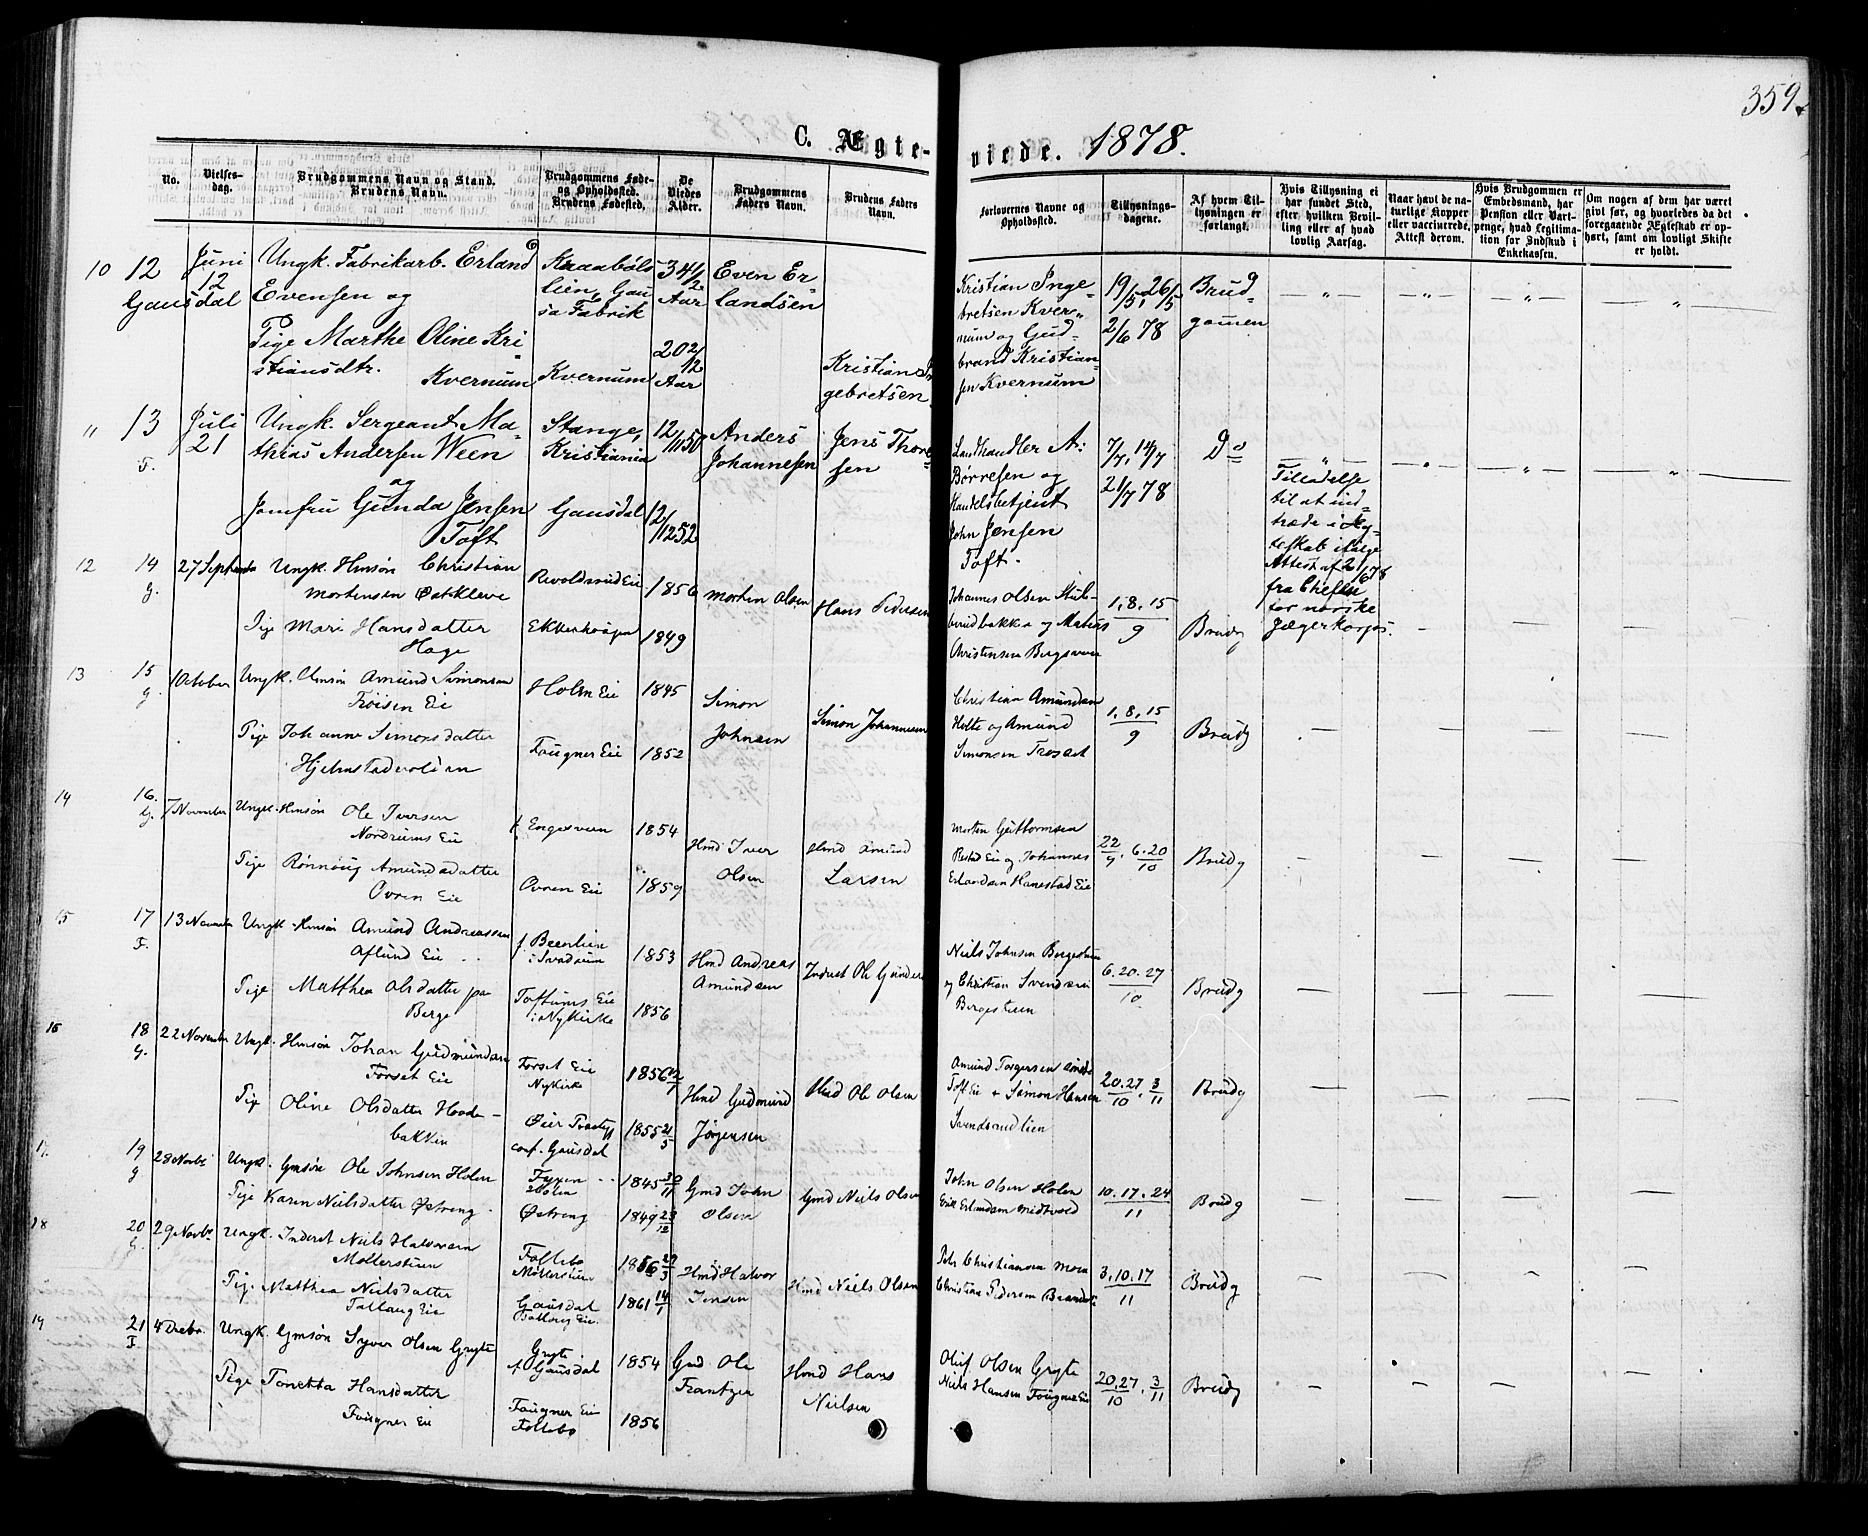 359
C. Ægte-
viede. 1878.
No.
Vielses-
dag.
Brudgommens Navn og Stand.
Brudens Navn.
Brudgommens Føde-
og Opholdssted.
Brudens Fødested.
De
Viedes
Alder.
Brudgommens
Faders Navn.
Brudens Faders
Navn.
Forlovernes Navne og
Opholdssted.
Tillysnings-
dagene.
Af hvem Til-
lysningen er
forlangt.
Hvis Tillysning ei
har fundet Sted,
efter hvilken Bevil-
ling eller af hvad
lovlig Aarsag.
Naar havt de na-
turlige Kopper
eller vaccinerede.
Attest derom.
Hvis Brudgommen er
Embedsmand, har
Pension eller Vart-
penge, hvad Legitima-
tion for Indskud i
Enkekassen.
Om nogen af dem har været
givt før, og hvorledes da det
foregaaende Ægteskab er op-
hørt, samt om lovligt Skifte
er holdt.
10 12
Gausdal
Juni
12
Ungk. Fabrikarb. Erland
Evensen og
Pige Marthe Oline Kri-
stiansdtr. Kvernum
Kraabøls
lien, Gau
sa Fabrik
Kvernum
34 1/2
Aar
20 2/12
Aar
Even Er-
landsen
Kristian In-
gebretsen
Kristian Inge-
bretsen Kver-
num og Gud-
brand Kristian-
sen Kvernum
19/5, 26/5
2/6 78
Brud-
gommen
11 13
F.
Juli
21
Ungk. Sergeant Ma-
thias Andersen Ween
og
Jomfru Gunda Jensen
Toft
Stange,
Kristiania
Gausdal
12/11 50
12/12 52
Anders
Johannesen
Jens Thore-
sen
Landhandler A:
Børresen og
Handelsbetjent
John Jensen
Toft.
7/7, 14/7
21/7 78
Do
Tilladelse
til at ind-
træde i Æg-
teskab ifølge
Attest af 21/6 78
fra Chefen
for norske
Jægerkorps.
12 14
G.
27 September
Ungk. Hmsøn Christian
Mortensen Østkleve
Pige Mari Hansdatter
Hage
1856
1849
Morten Olsen
Hans Pedersen
Johannes Olsen
og Mathias
Christensen
1, 8, 15
9
Brudg
13 15
G.
1 October
Ungk. Hmsøn Amund Simonsen
Frøisen Eie
Pige Johanne Simonsdatter
Hjelmstadvolden
Holm Eie
Fougner Eie
1845
1852
Simon
Johnsen
Simon Johannesen
Christian Amundsen
Holte og Amund
Simonsen
1, 8, 15
9
Brudg
14 16.
G.
7 November
Ungk. Hmsøn Ole Iversen
Nordrums Eie
Pige Rønnaug Amundsdatter
Ovren Eie
f. Engesveen
Ovren Eie
1854
1859
Hmd Iver
Olsen
Hmd Amund
Larsen
Morten Guttormsen
Eie og Johannes
Erlandsen Hanestad Eie
22/9. 6. 20/10
Brudg
15 17
F.
13 November
Ungk. Hmsøn Amund Andreassen
Aflund Eie
Pige Matthea Olsdatter paa
Berge
f. Beerlien
i Svadsum
Toftums Eie
i Nykirke
1853
1856
Hmd Andreas
Amundsen
Inderst Ole Gunders
Niels Johnsen Bergestuen
og Christian Svendsen
Bergestuen
6. 20. 27
10
Brudg
16 18
G.
22 November
Ungk. Hmsøn Johan Gudmundsen
Forset Eie
Pige Oline Olsdatter Hoode-
bakken
Forset Eie
Nykirke
Øier
conf. Gausdal
1856 12/7
1855 21/5
Hmd Gudmund
Jørgensen
Hmd Ole Olsen
Amund Torgersen
Toft Eie + Simon Hansen
Svendsrudlien
20. 27/10. 3/11
Brudg
17. 19
G
28 Novbr
Ungk. Gmsøn Ole Johnsen Holen
Pige Karen Nielsdatter Østreng
Holen
Østreng
1845 30/11
1849 23/12
Gmd John
Olsen
Gmd Niels Olsen
John Olsen Holen
Erik Erlandsen Midtvold
10. 17. 24
11
Brudg
18 20
G.
29 Novbr
Ungk. Inderst Niels Halvorsen
Møllerstuen
Pige Matthea Nielsdatter
Follaug Eie
Follebo
Møllerstuen
Gausdal
1856 27/3
1861 14/1
Hmd Halvor
Jensen
Hmd Niels Olsen
Peder Christiansen Moen
Christian Pedersen
3. 10. 17
11
Brudg
19 21
F.
4 Decbr.
Ungk. Gmsøn Syver Olsen Gryte
Pige Tonetta Hansdatter
Fougner Eie
Gryte
f. Gausdal
Fougner Eie
Follebo
1854
1856
Gmd Ole
Frantzen
Hmd Hans
Nielsen
Oluf Olsen Gryte
Niels Hansen Fougner Eie
20. 27/10. 3/11
Brudg